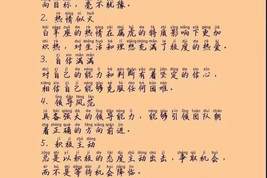 向目标，毫不犹豫。
2. 热情似火
白羊座的热情在属虎的特质影响下更加
炽热，对生活和理想充满了极度的热爱。
3. 自信满满
对自己的能力和判断有着坚定的信心，
相信自己能够克服任何困难。
4. 领导风范
具备强大的领导能力，能够引领团队朝
着正确的方向前进。
5. 积极主动
总是以积极的态度主动出击，争取机会，
而不是等待机会降临。